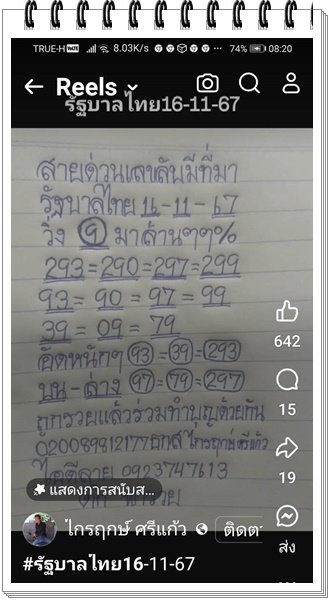 TRUE-H 8.03K/s 74% 08:20
Reels
รัฐบาลไทย16-11-67
สายด่วนเลขลับมีที่มา
รัฐบาลไทย 16-11-67
วิ่ง 9 มาล้านๆๆ%
293=290=297=299
93=90=97=99
39=09=79
อัดหนักๆ 93=39=293
บน-ล่าง 97=79=297
ถูกรวยแล้วร่วมทำบุญด้วยกัน
020089812177 ธกส ไกรฤกษ์ศรีแก้ว
ไอดีลาย 0923747613
642
15
19
แสดงการสนับส...
ไกรฤกษ์ ศรีแก้ว ติดต
ส่ง
#รัฐบาลไทย16-11-67